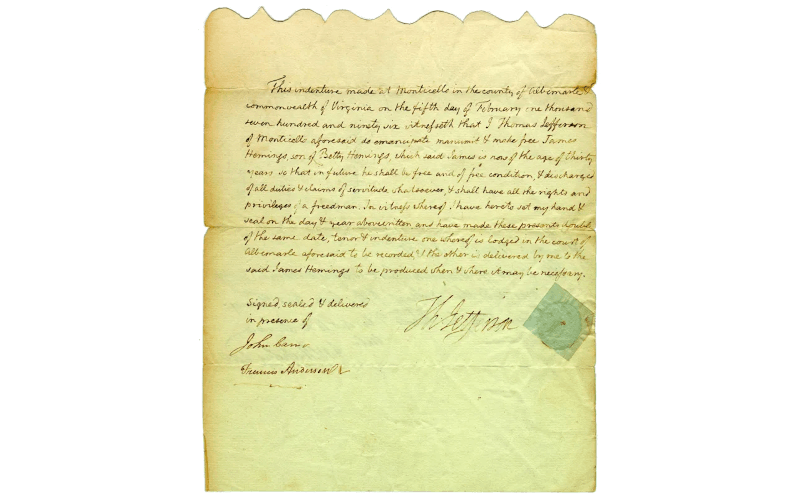 This indenture made at Monticello in the county of Albemarle &
commonwealth of Virginia on the fifth day of February one thousand
seven hundred and ninety six witnesseth that I Thomas Jefferson
of Monticello aforesaid do emancipate manumit & make free James
Hemings, son of Betty Hemings, which said James is now of the age of thirty
years so that in future he shall be free and of free condition, & discharged
of all duties & claims of servitude whatsoever, & shall have all the rights and
privileges of a freedman. In witness whereof I have hereto set my hand &
seal on the day & year abovewritten and have made these presents double
of the same date, tenor & indenture one whereof is lodged in the court of
Albemarle aforesaid to be recorded & the other is delivered by me to the
said James Hemings to be produced when & where it may be necessary.
Signed, sealed & delivered
in presence of
Th Jefferson
John Carr
Francis Anderson